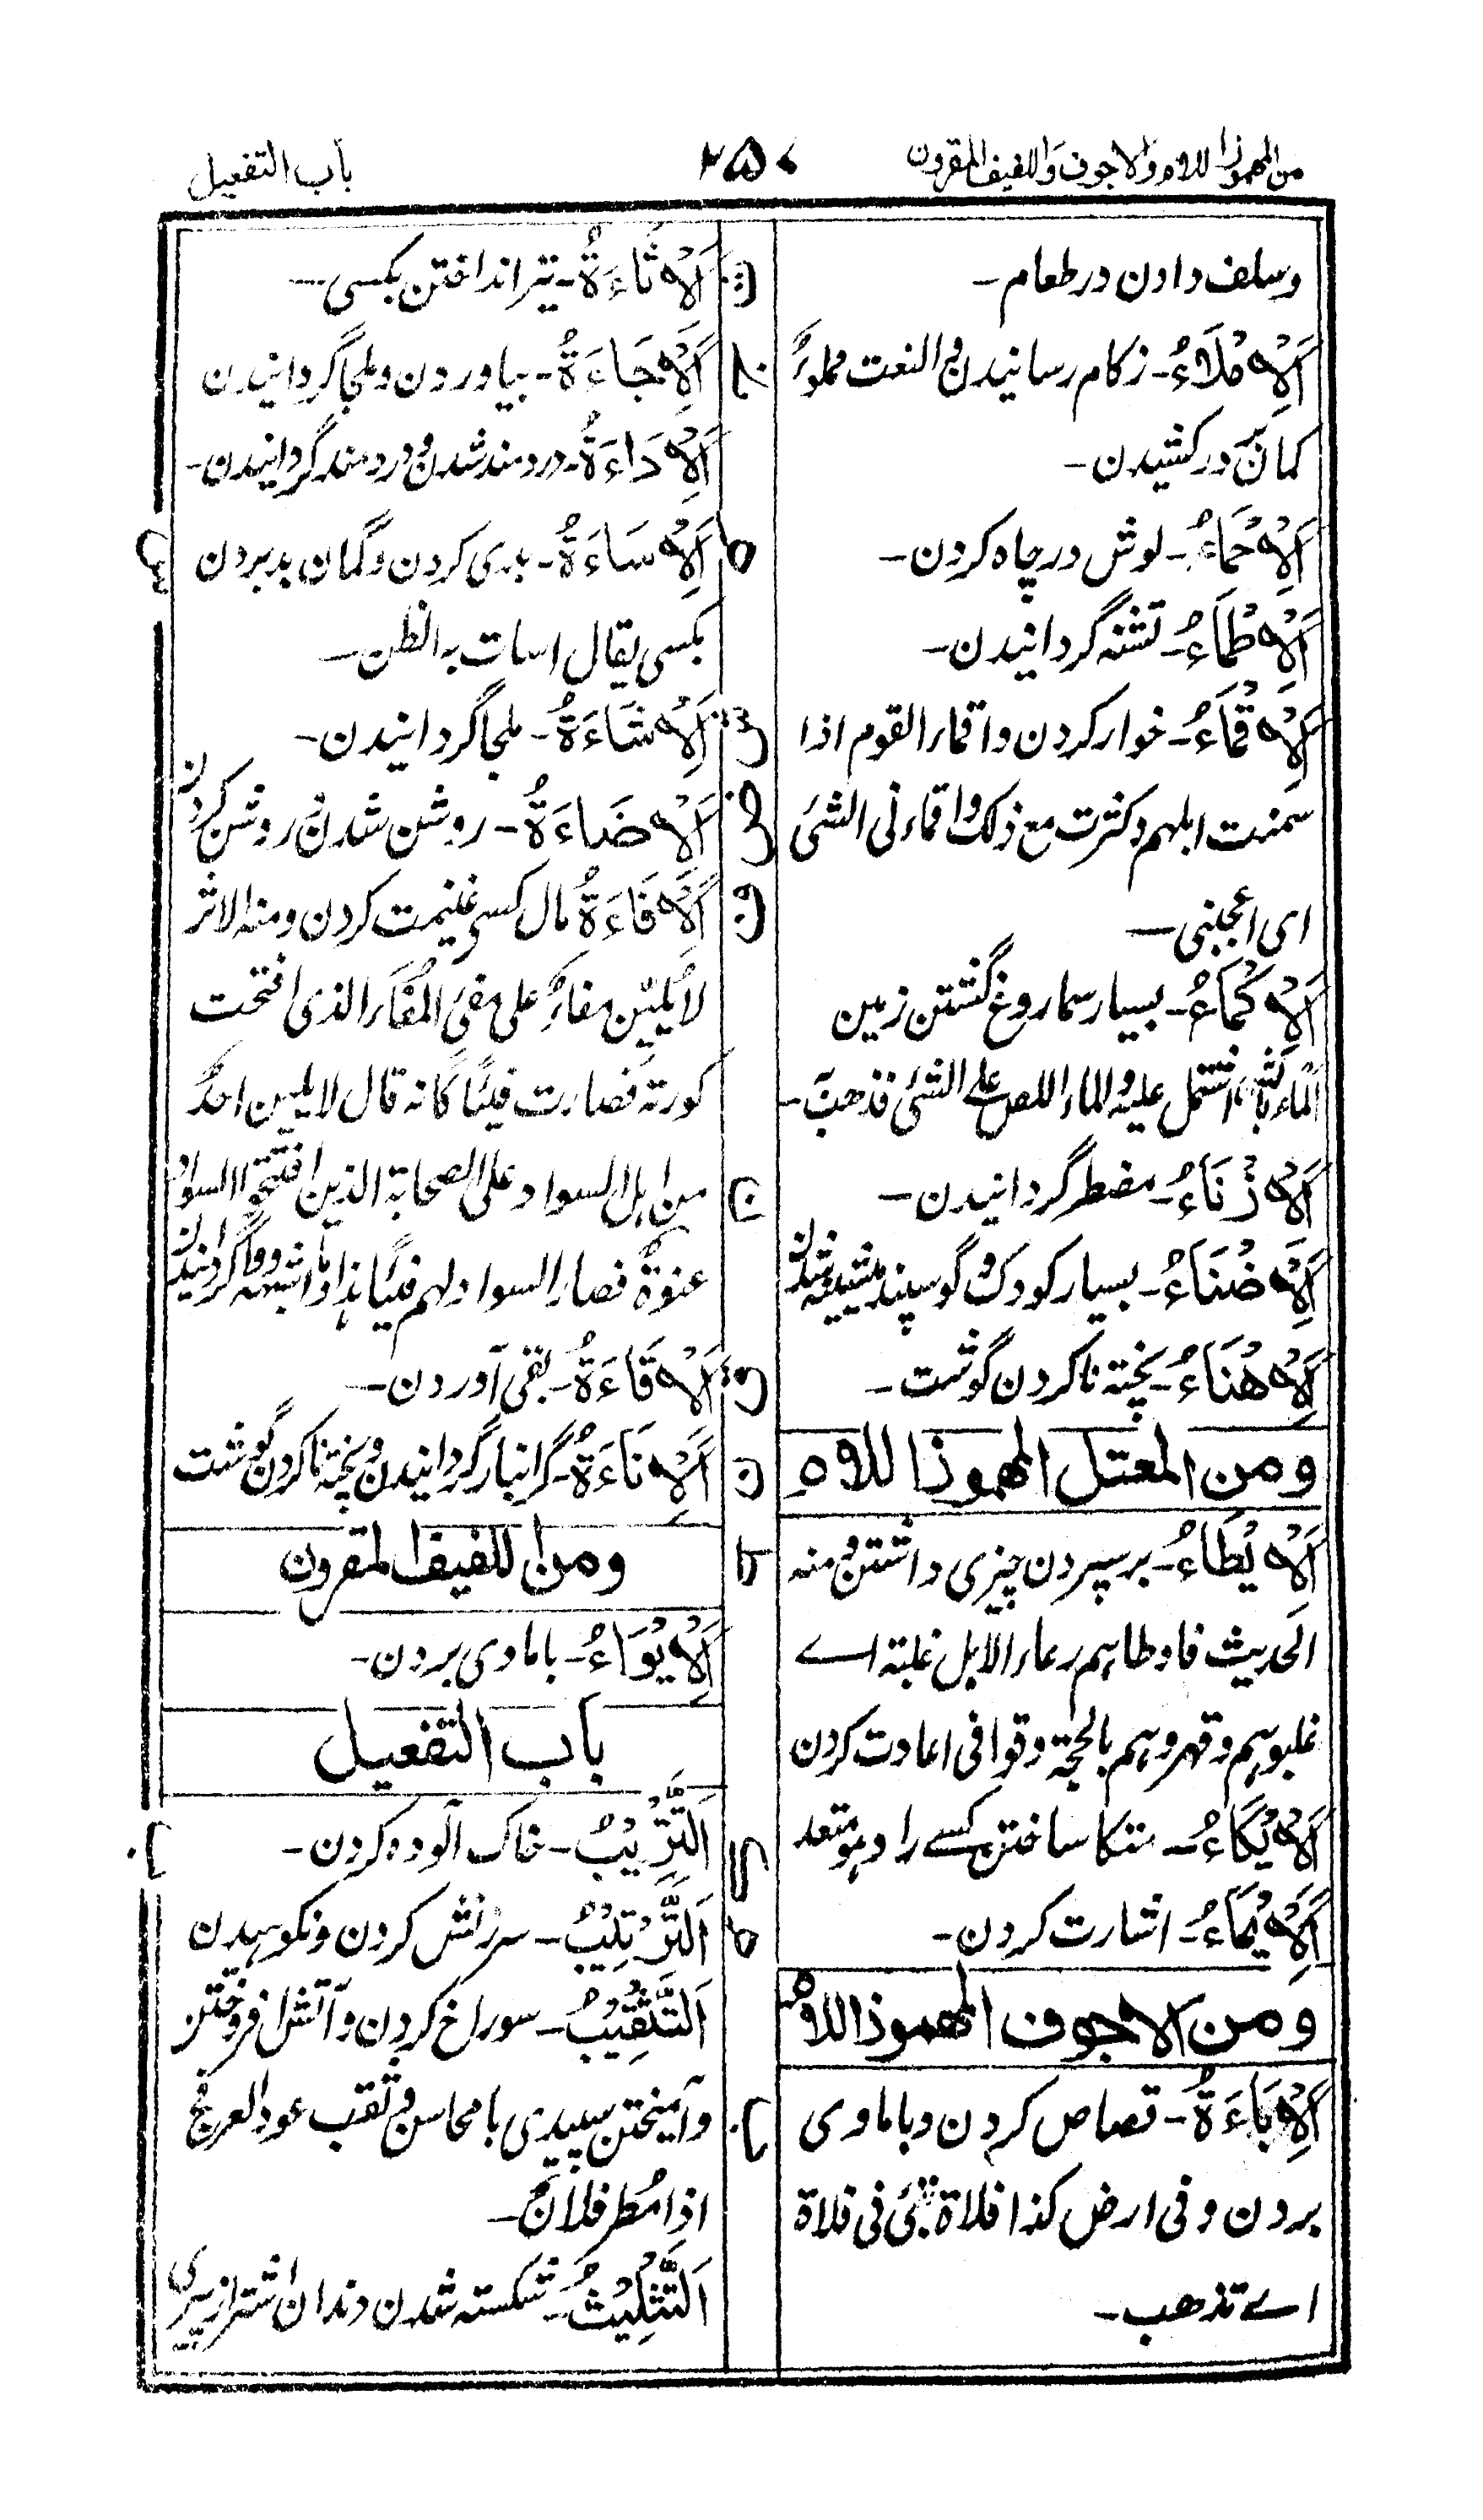 من المهموز اللام والاجوف واللفيف المقرون
۲۵۷
باب التفعيل
وسلف دادن در طعام۔
اَلْاِمْلَاءُ۔ زكام رسانيدن و النعت مملوءٌ
كمان در كشيدن۔
اَلْاِحْمَاءُ۔ لوش در چاه كردن۔
اَلْاِظْمَاءُ۔ تشنه گردانيدن۔
اَلْاِقْمَاءُ۔ خوار كردن و اقماء القوم اذا
سمنت ابلهم و كثرت مع ذلك و اقماء نى الشئ
اى اعجبنى۔
اَلْاِكْمَاءُ۔ بسيار سماروغ گشتن زمين
اشتمل عليه و الماء اللص على الشئ فذهب۔
اَلْاِزْنَاءُ۔ مضطر گردانيدن۔
اَلْاِضْنَاءُ۔ بسيار كودك و گوسپند
اَلْاِهْنَاءُ۔ پخته نا كردن گوشت۔
ومن المعتل المهموز اللام
اَلْاِيْطَاءُ۔ بر سپردن چيزى داشتن و منه
الحديث فاوطاهم رعاء الابل غلبة اے
غلبوهم و قهروهم بالحجة و قوافى اعادت كردن
اَلْاِيْكَاءُ۔ متكا ساختن كسے را و هو متعد
اَلْاِيْمَاءُ۔ اشارت كردن۔
ومن الاجوف المهموز اللام
اَلْاِبَاءَةُ۔ قصاص كردن و با ماوى
بردن و فى ارض كذا فلاة تبئ فى فلاة
اے تذهب۔
ث اَلْاِثَاءَةُ۔ تير انداختن بكسى۔
ج اَلْاِجَاءَةُ۔ بياوردن و ملجا گردانيدن
اَلْاِدَاءَةُ۔ دردمند شدن و دردمند گردانيدن۔
اَلْاِسَاءَةُ۔ بدى كردن و گمان بد بردن
بكسى يقال اسات به الظن۔
ش اَلْاِشَاءَةُ۔ ملجا گردانيدن۔
ض اَلْاِضَاءَةُ۔ روشن شدن و روشن كردن
ف اَلْاِفَاءَةُ مال كسى غنيمت كردن و منه الاثر
لا يلين مفاءٌ على مفئ المُفاء الذى افتتحت
كورته فصارت فيئًا كانه قال لا يلين احدٌ
ن من اهل السواد على الصحابة الذين افتتحوا السواد
عنوة فصار السواد لهم فيئا هذا
ق اَلْاِقَاءَةُ۔ بقى آوردن۔
ن اَلْاِنَاءَةُ۔ گرانبار گردانيدن و پخته نا كردن گوشت
ومن اللفيف المقرون
اَلْاِيْوَاءُ۔ با ماوى بردن۔
باب التفعيل
ب اَلتَّتْرِيْبُ۔ خاك آلوده كردن۔
اَلتَّثْرِيْبُ۔ سرزنش كردن و نكوهيدن
اَلتَّثْقِيْبُ۔ سوراخ كردن و آتش افروختن
و آميختن سپيدى با محاسن و ثقب عود العرفج
اذا مُطر فلانَ۔
اَلتَّثْلِيْثُ۔ شكسته شدن دندان اشتر از پيرى